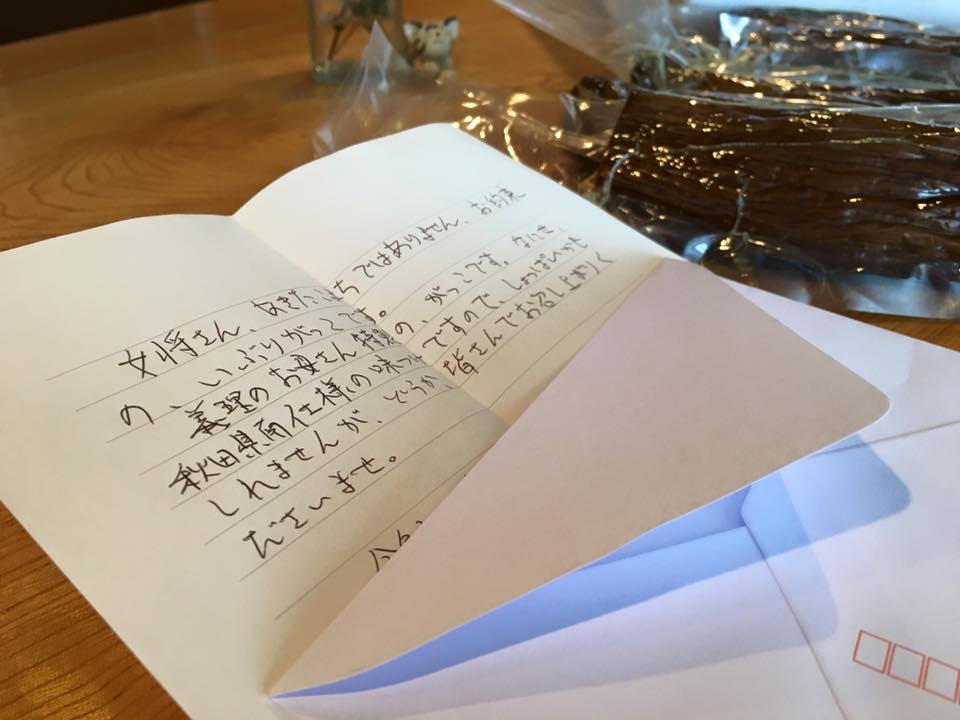 女将さん、あきたこまちではありません、お約束
の、いぶりがっこです。
義理のお母さん特製の、がっこです。なにせ、
秋田県南仕様の味つけですので、しょっぱいかも
しれませんが、どうか、皆さんでお召し上がりく
ださいませ。